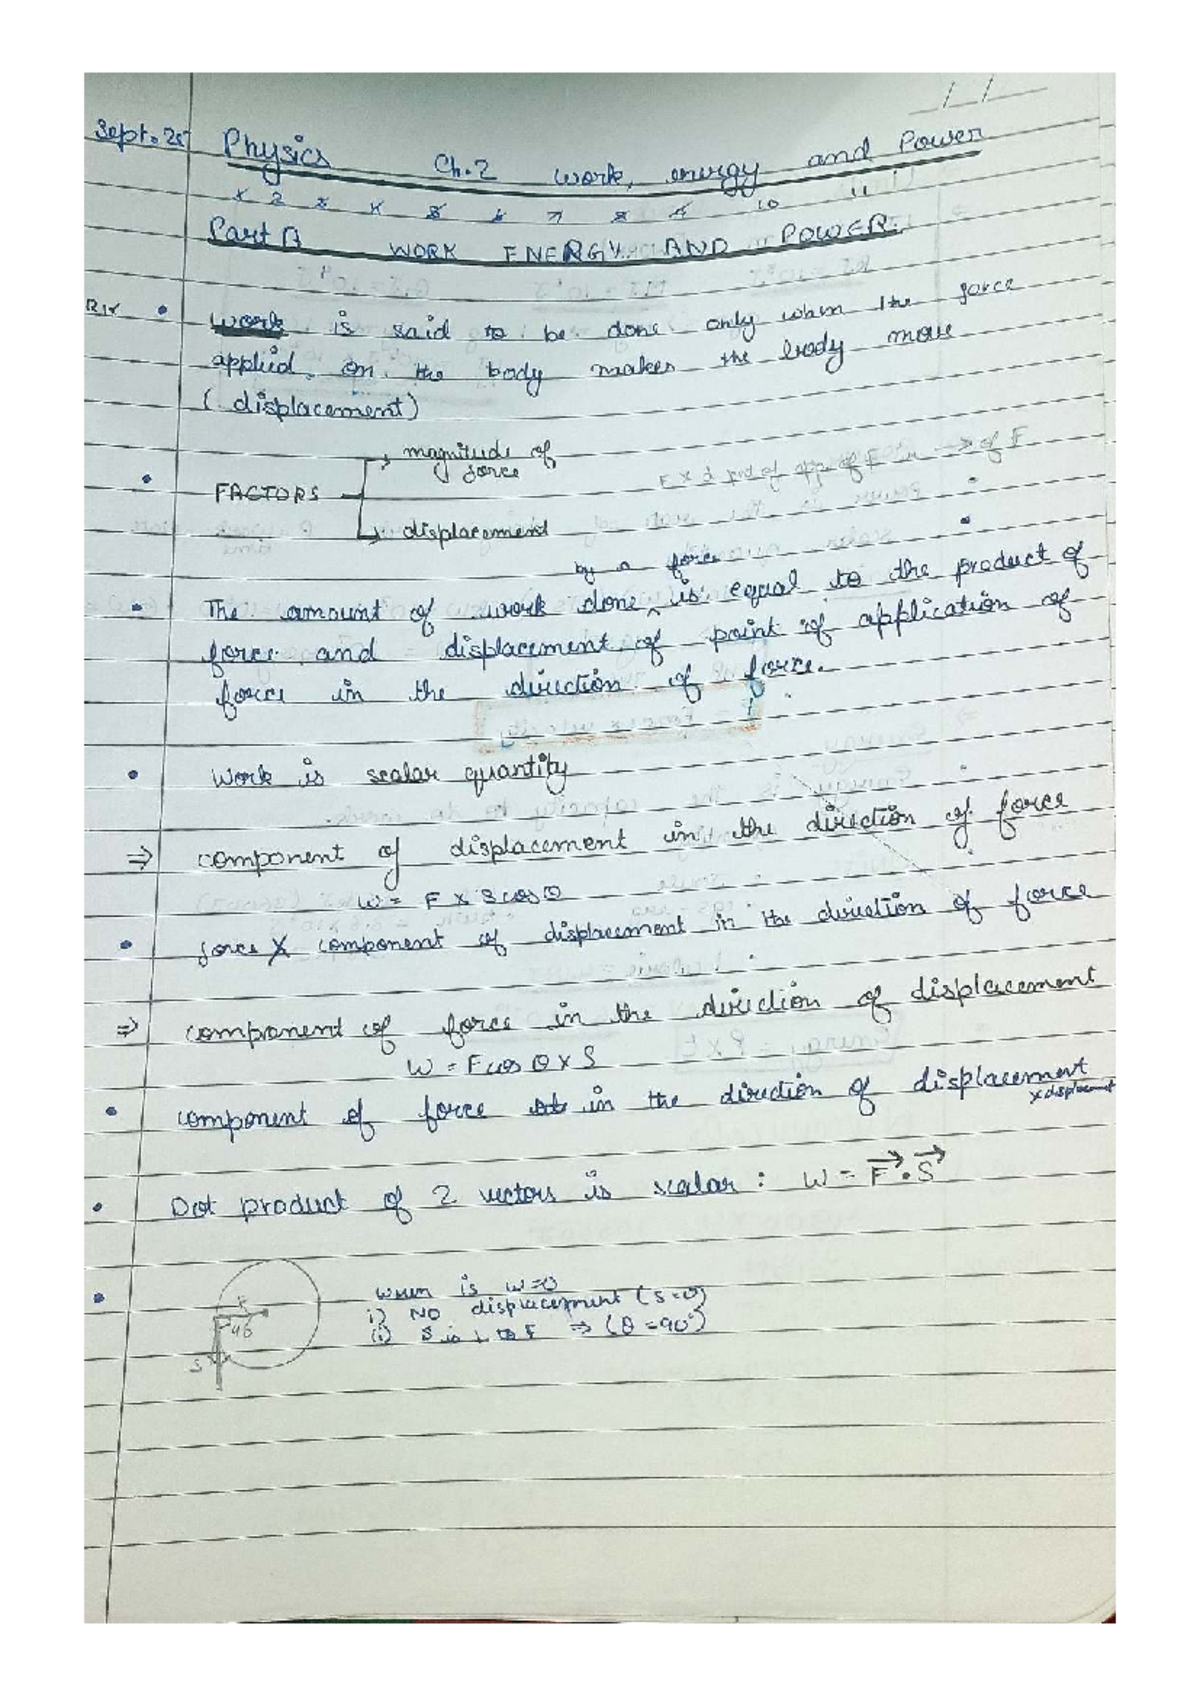 / /
Sept. 25 Physics Ch.2 work, energy and Power
2 7 10 11
Part A WORK ENERGY AND POWER.
• Work is said to be done only when the force
applied on the body makes the body move
(displacement)
→ magnitude of force
• FACTORS
→ displacement
by a force
• The amount of work done ^ is equal to the product of
force and displacement of point of application of
force in the direction of force.
• Work is scalar quantity
⇒ component of displacement in the direction of force
W = F X S cos θ
• force X component of displacement in the direction of force
⇒ component of force in the direction of displacement
W = F cos θ X S
• component of force in the direction of displacement
x displacement
• Dot product of 2 vectors is scalar : W = F⃗ . S⃗
• when is W=0
i) NO displacement (S=0)
ii) S is ⊥ to F ⇒ (θ = 90°)
F
S